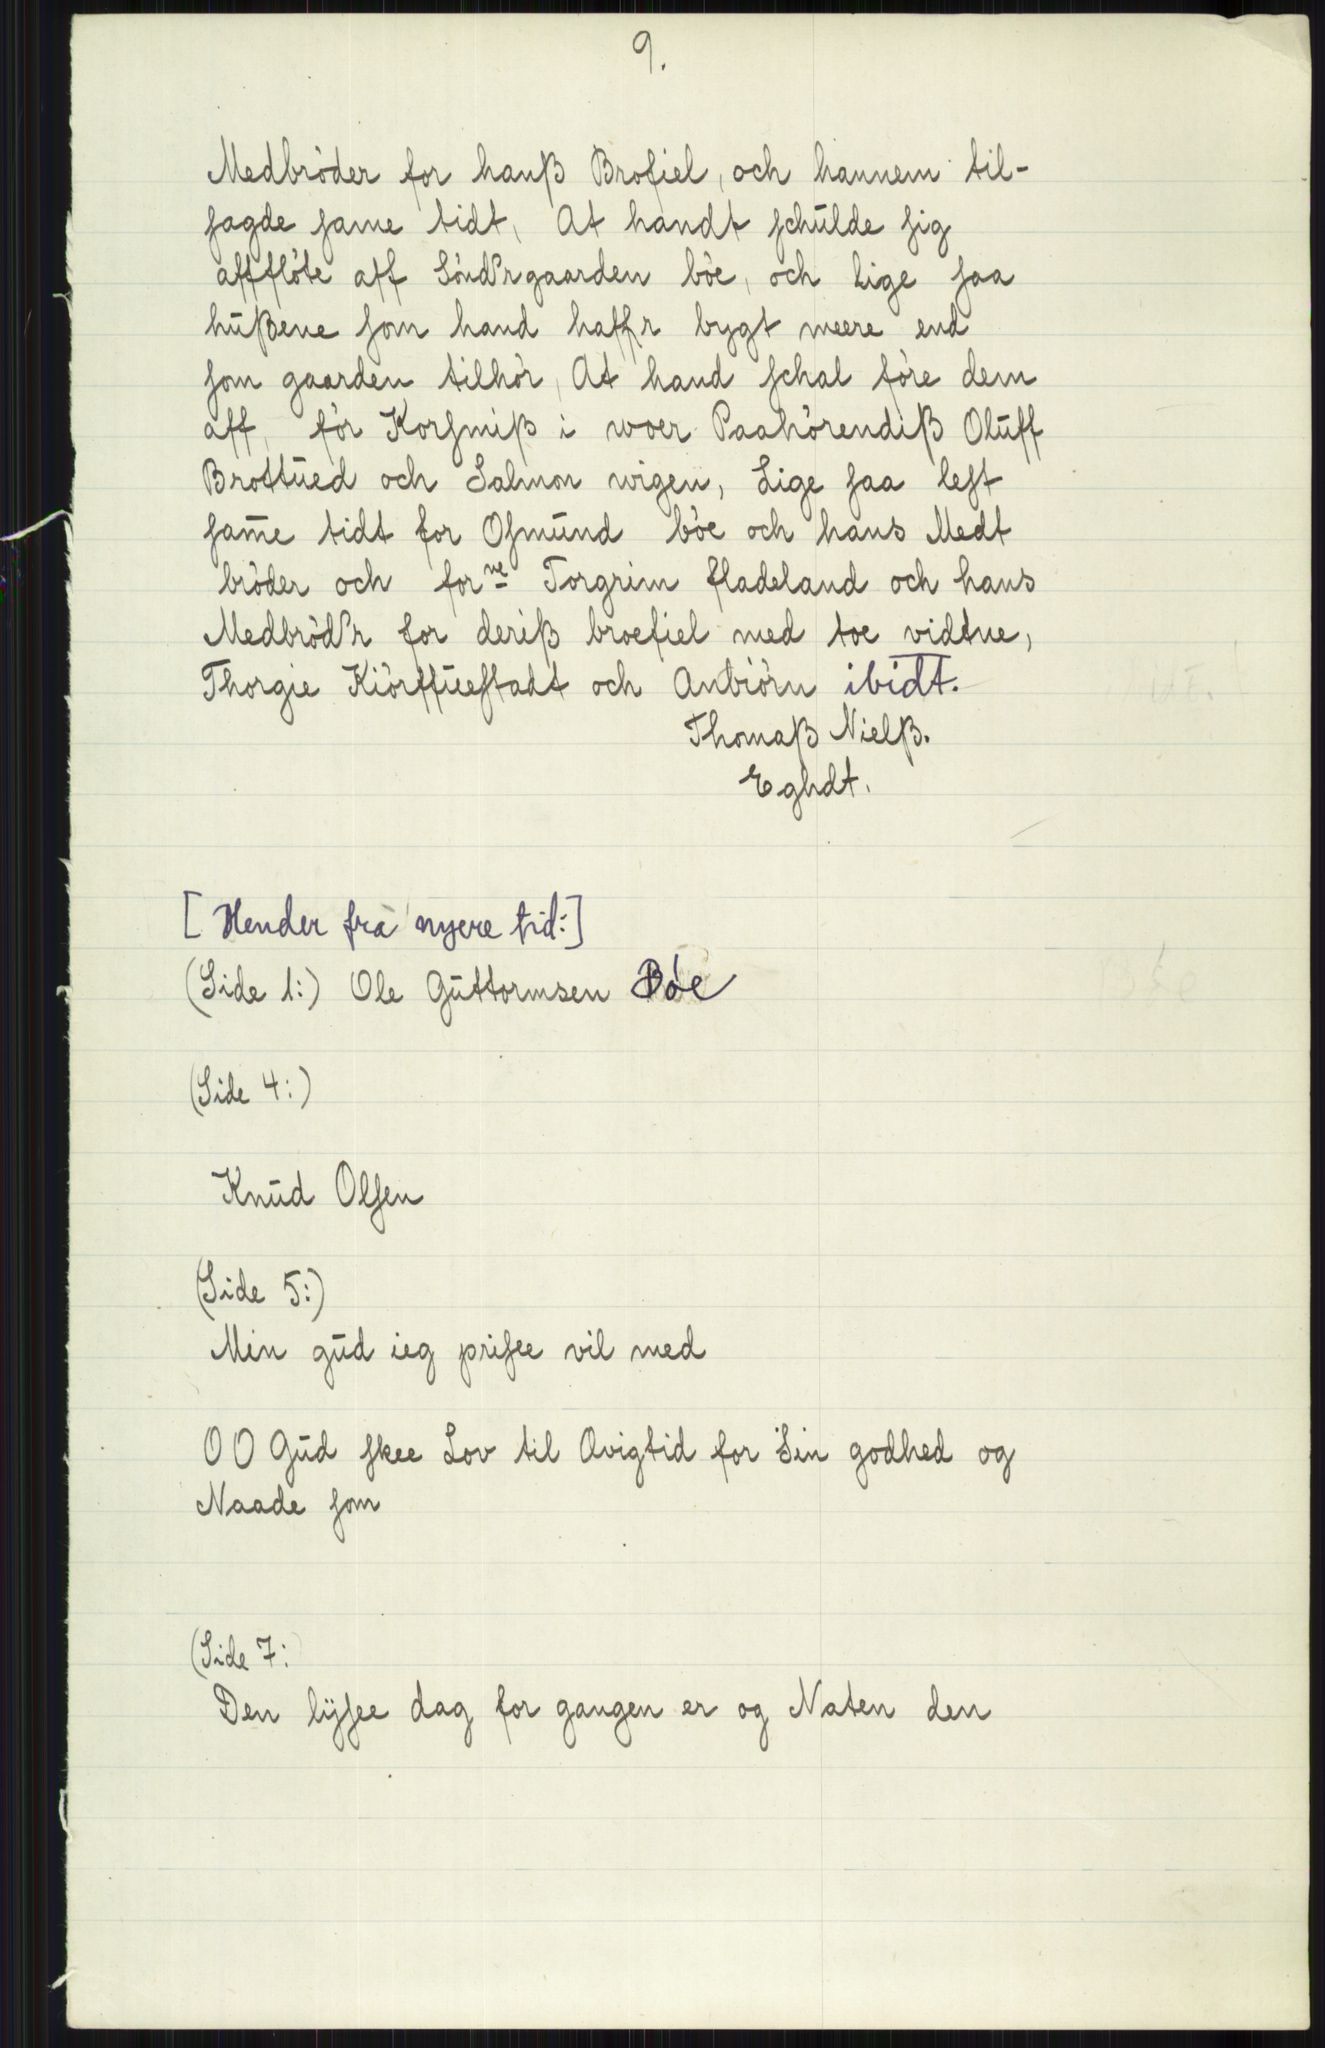 9.
Medbröder for hanß Brofiel, och hannem til-
sagde same tidt, At handt schulde sig
affflöte aff Sönd'rgaarden böe, och lige saa
hußene som hand haffr bygt meere end
som gaarden tilhör, At hand schal före dem
aff, för Korsmiß i woer Paahörendiß Oluff
Brottued och Salmon wigen, Lige saa lest
sam̅e tidt for Osmund böe och hans Medt
bröder och forne Torgrim fladeland och hans
Medbröd'r for deriß broefiel med toe vidtne,
Thorgie Kiörffuestadt och Anbiörn ibidt.
Thomaß Nielß.
Eghdt.
[Hender fra nyere tid:]
(Side 1:) Ole Guttormsen Böe
(Side 4:)
Knud Olsen
(Side 5:)
Min gud ieg prisee vil med
O O Gud skee Lov til Avigtid for Sin godhed og
Naade som
(Side 7:
Den lÿsee dag for gangen er og Naten den